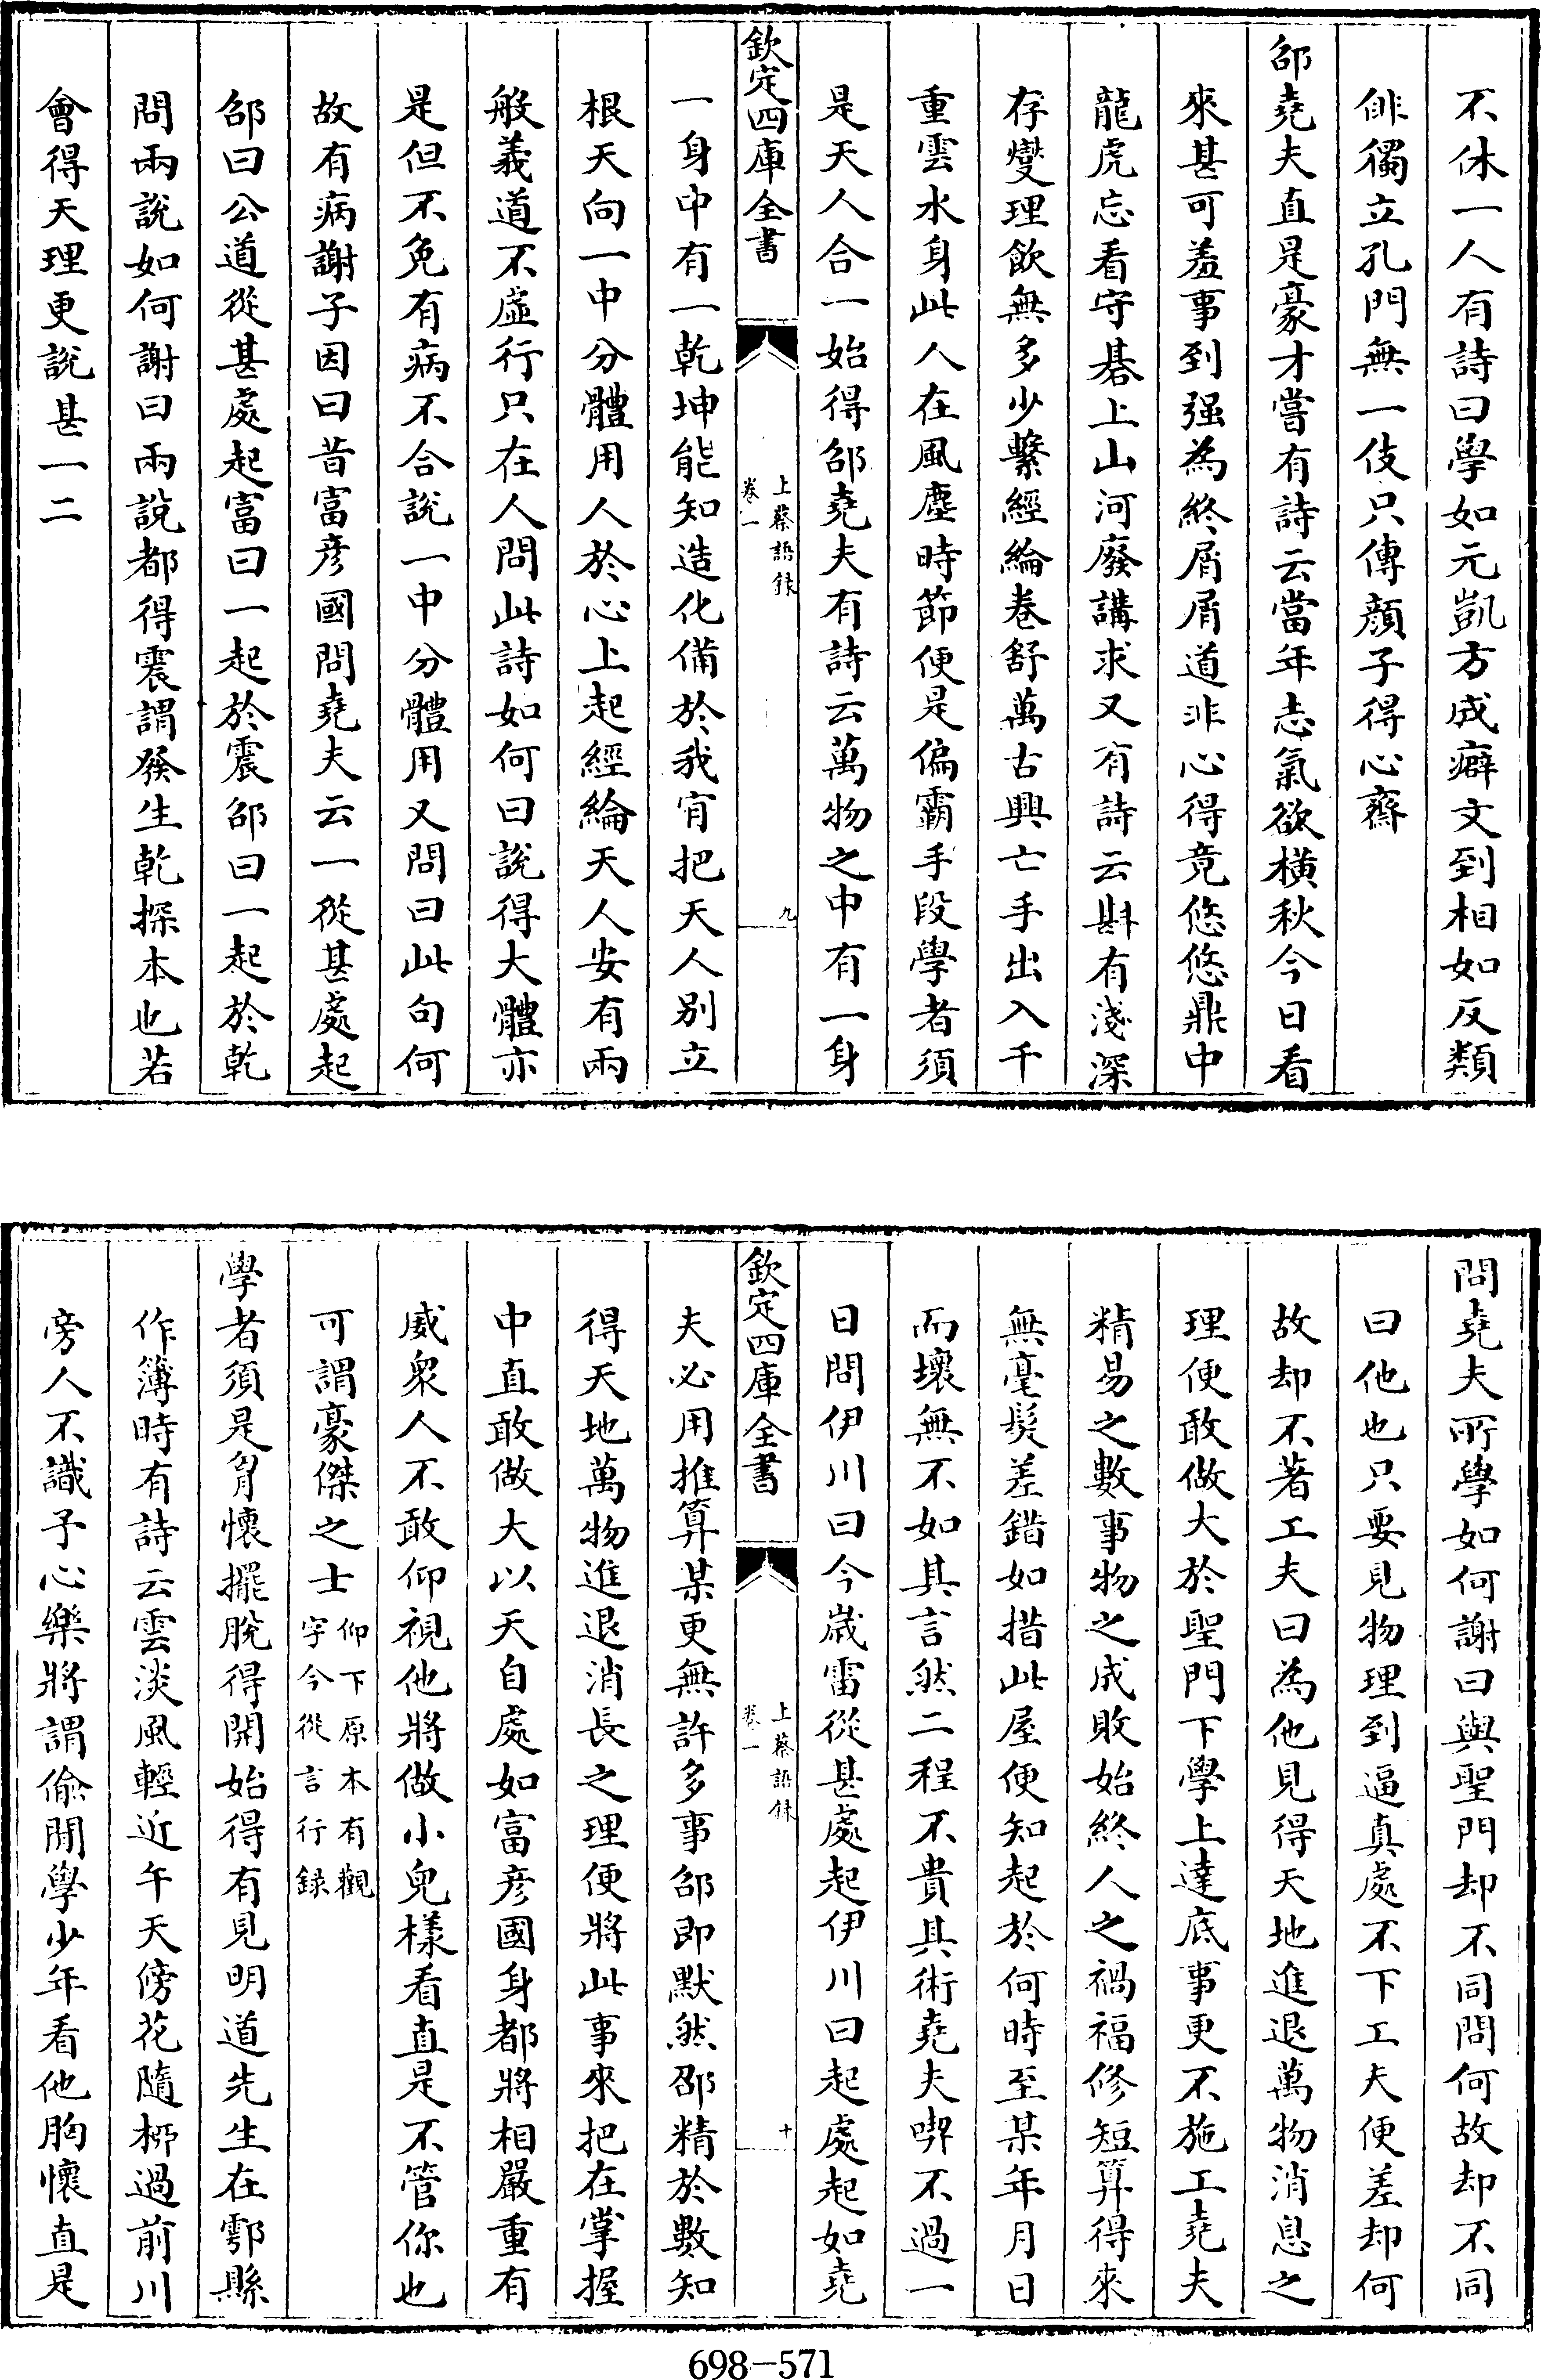 不休一人有詩曰學如元凱方成癖文到相如反類
俳獨立孔門無一伎只傳顔子得心齋
邵堯夫直是豪才嘗有詩云當年志氣欲橫秋今日看
來甚可羞事到强為終屑屑道非心得竟悠悠鼎中
龍虎忘看守碁上山河廢講求又有詩云斟有淺深
存燮理飲無多少繫經綸卷舒萬古興亡手出入千
重雲水身此人在風塵時節便是偏霸手段學者須
是天人合一始得邵堯夫有詩云萬物之中有一身
欽定四庫全書
上蔡語錄
卷一
九
一身中有一乾坤能知造化備於我肎把天人别立
根天向一中分體用人於心上起經綸天人安有兩
般義道不虚行只在人問此詩如何曰說得大體亦
是但不免有病不合説一中分體用又問曰此句何
故有病謝子因曰昔富彦國問堯夫云一從甚處起
邵曰公道從甚處起富曰一起於震邵曰一起於乾
問兩說如何謝曰兩說都得震謂發生乾探本也若
會得天理更説甚一二
問堯夫所學如何謝曰與聖門却不同問何故却不同
曰他也只要見物理到逼真處不下工夫便差却何
故却不著工夫曰為他見得天地進退萬物消息之
理便敢做大於聖門下學上達底事更不施工堯夫
精易之數事物之成敗始終人之禍福修短算得來
無毫髮差錯如措此屋便知起於何時至某年月日
而壞無不如其言然二程不貴其術堯夫喫不過一
日問伊川曰今歲雷從甚處起伊川曰起處起如堯
欽定四庫全書
上蔡語錄
卷一
十
夫必用推算某更無許多事邵即默然邵精於數知
得天地萬物進退消長之理便將此事來把在掌握
中直敢做大以天自處如富彦國身都將相嚴重有
威衆人不敢仰視他將做小兒様看直是不管你也
可謂豪傑之士仰下原本有觀字今從言行錄
學者須是胷懷擺脫得開始得有見明道先生在鄠縣
作簿時有詩云雲淡風輕近午天傍花隨柳過前川
旁人不識予心樂將謂偷閒學少年看他胸懷直是
698-571